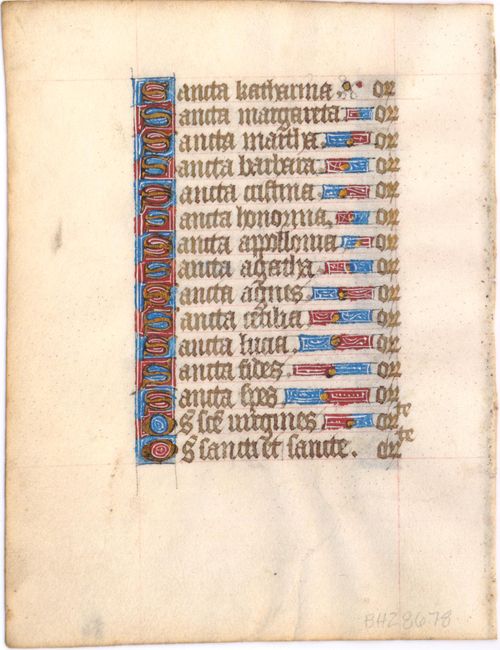 Sancta katharina or
Sancta margareta or
Sancta martha or
Sancta barbara or
Sancta cristina or
Sancta honorina or
Sancta appollonia or
Sancta agatha or
Sancta agnes or
Sancta cecilia or
Sancta lucia or
Sancta fides or
Sancta spes or
Os scē virgines orte
Os sancti et sancte. orte
BHZ8678